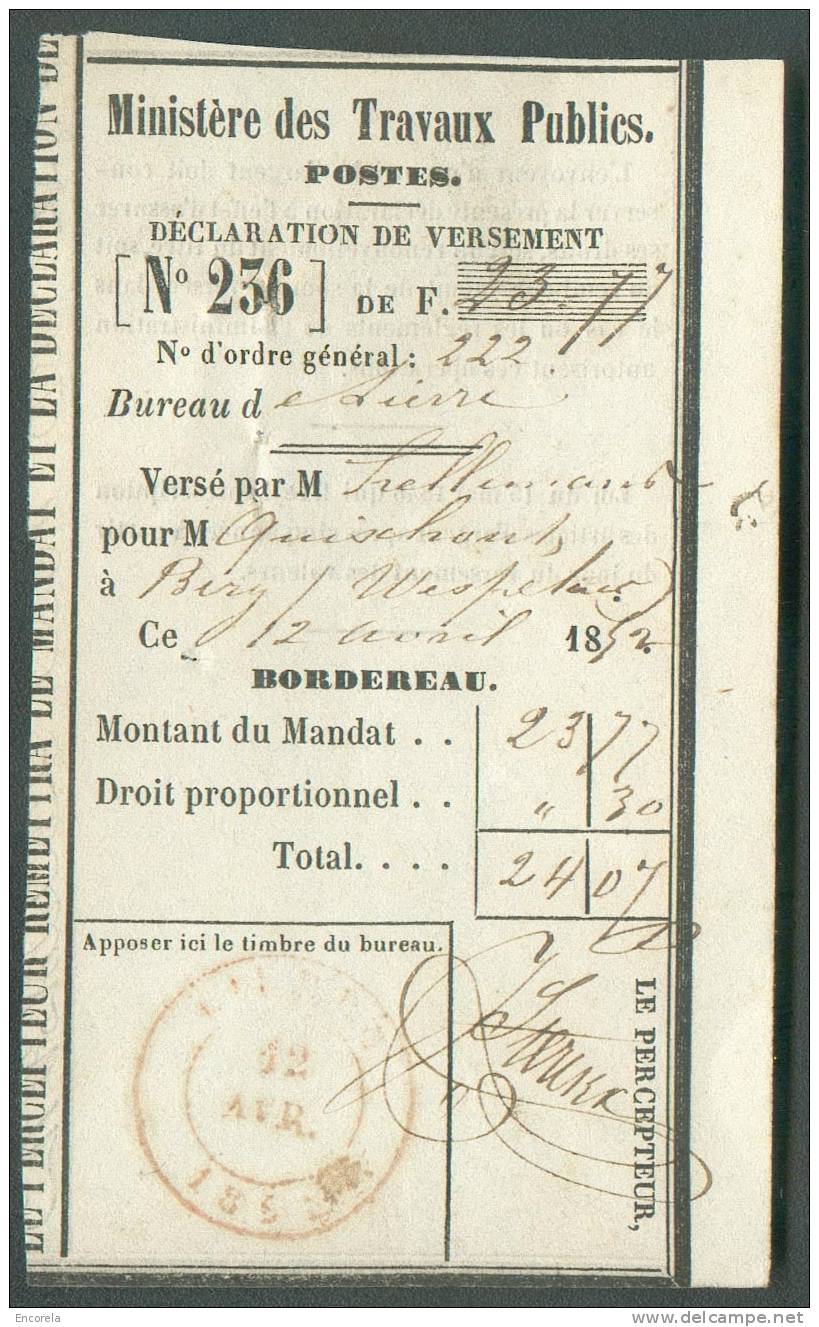 LE PERCEPTEUR REMETTRA LE MANDAT ET LA DÉCLARATION DE
Ministère des Travaux Publics.
POSTES.
DÉCLARATION DE VERSEMENT
[Nº 236] DE F. 23.77
Nº d'ordre général: 222
Bureau de Lierre
Versé par M
pour M
à Berg
Ce 12 avril 1852.
BORDEREAU.
Montant du Mandat . . 23 77
Droit proportionnel . . " 30
Total. . . . 24 07
Apposer ici le timbre du bureau.
12
AVR.
185
LE PERCEPTEUR,
Encorela
www.delcampe.net